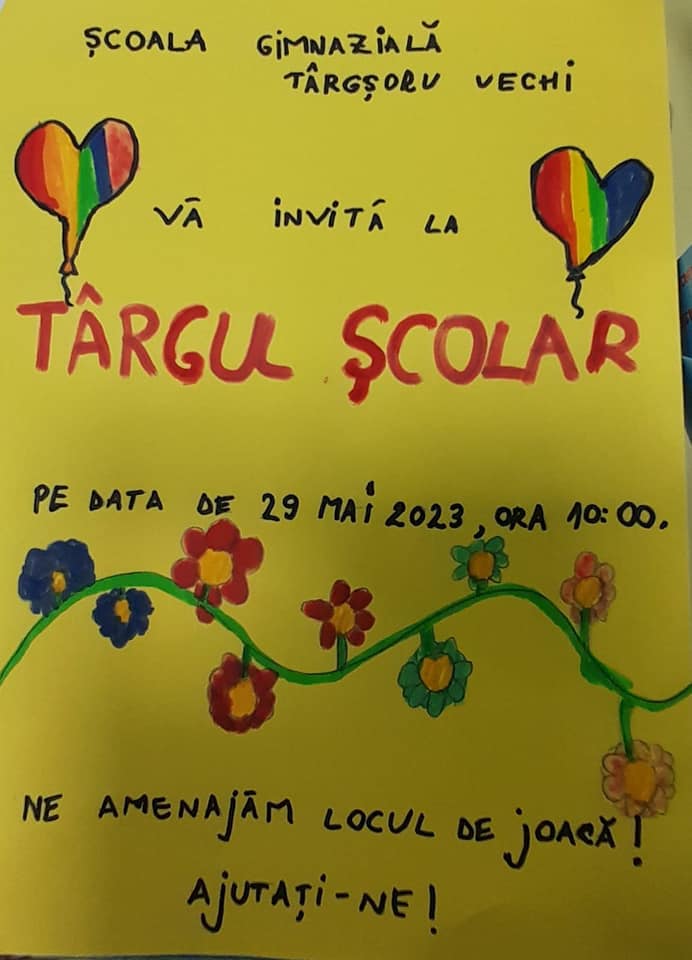 ȘCOALA GIMNAZIALĂ
TÂRGȘORU VECHI
VĂ INVITĂ LA
TÂRGUL ȘCOLAR
PE DATA DE 29 MAI 2023, ORA 10:00.
NE AMENAJĂM LOCUL DE JOACĂ!
AJUTAȚI-NE!